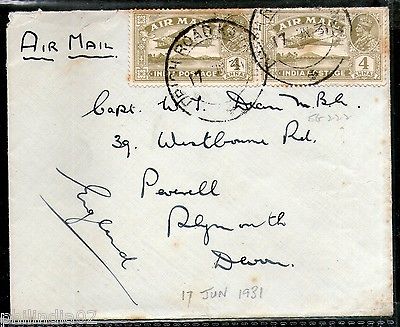 AIR MAIL
AIR MAIL
INDIA POSTAGE
4
AS
AIR MAIL
INDIA POSTAGE
4
AS
ROAD
17
17
Capt. W. T. Dean M.B.E.
39 Westbourne Rd.
Peverell
Plymouth
Devon.
England
17 JUN 1931
philindia02